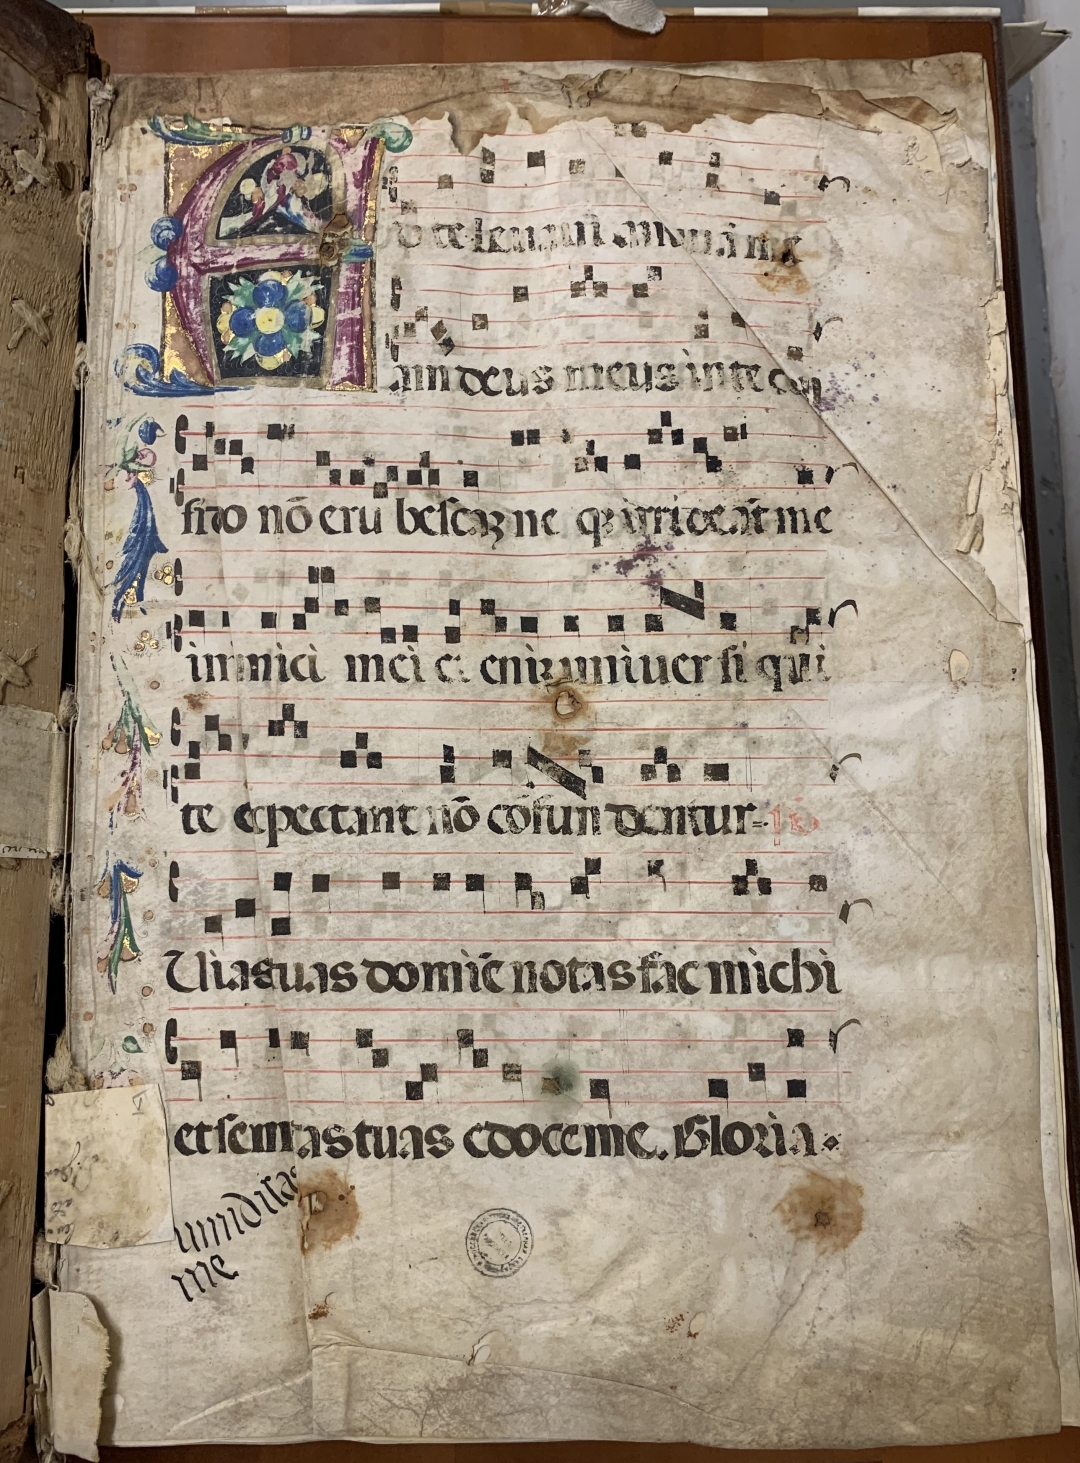 Ad te leuaui animā me
am deus meus in te con
fido nō erubescaȝ neqȝ irrideāt me
inimici mei et eniȝ uniuersi qui
te expectant nō cōfundentur
Uias tuas domie notas fac michi
et semitas tuas edoce me. Gloria
me